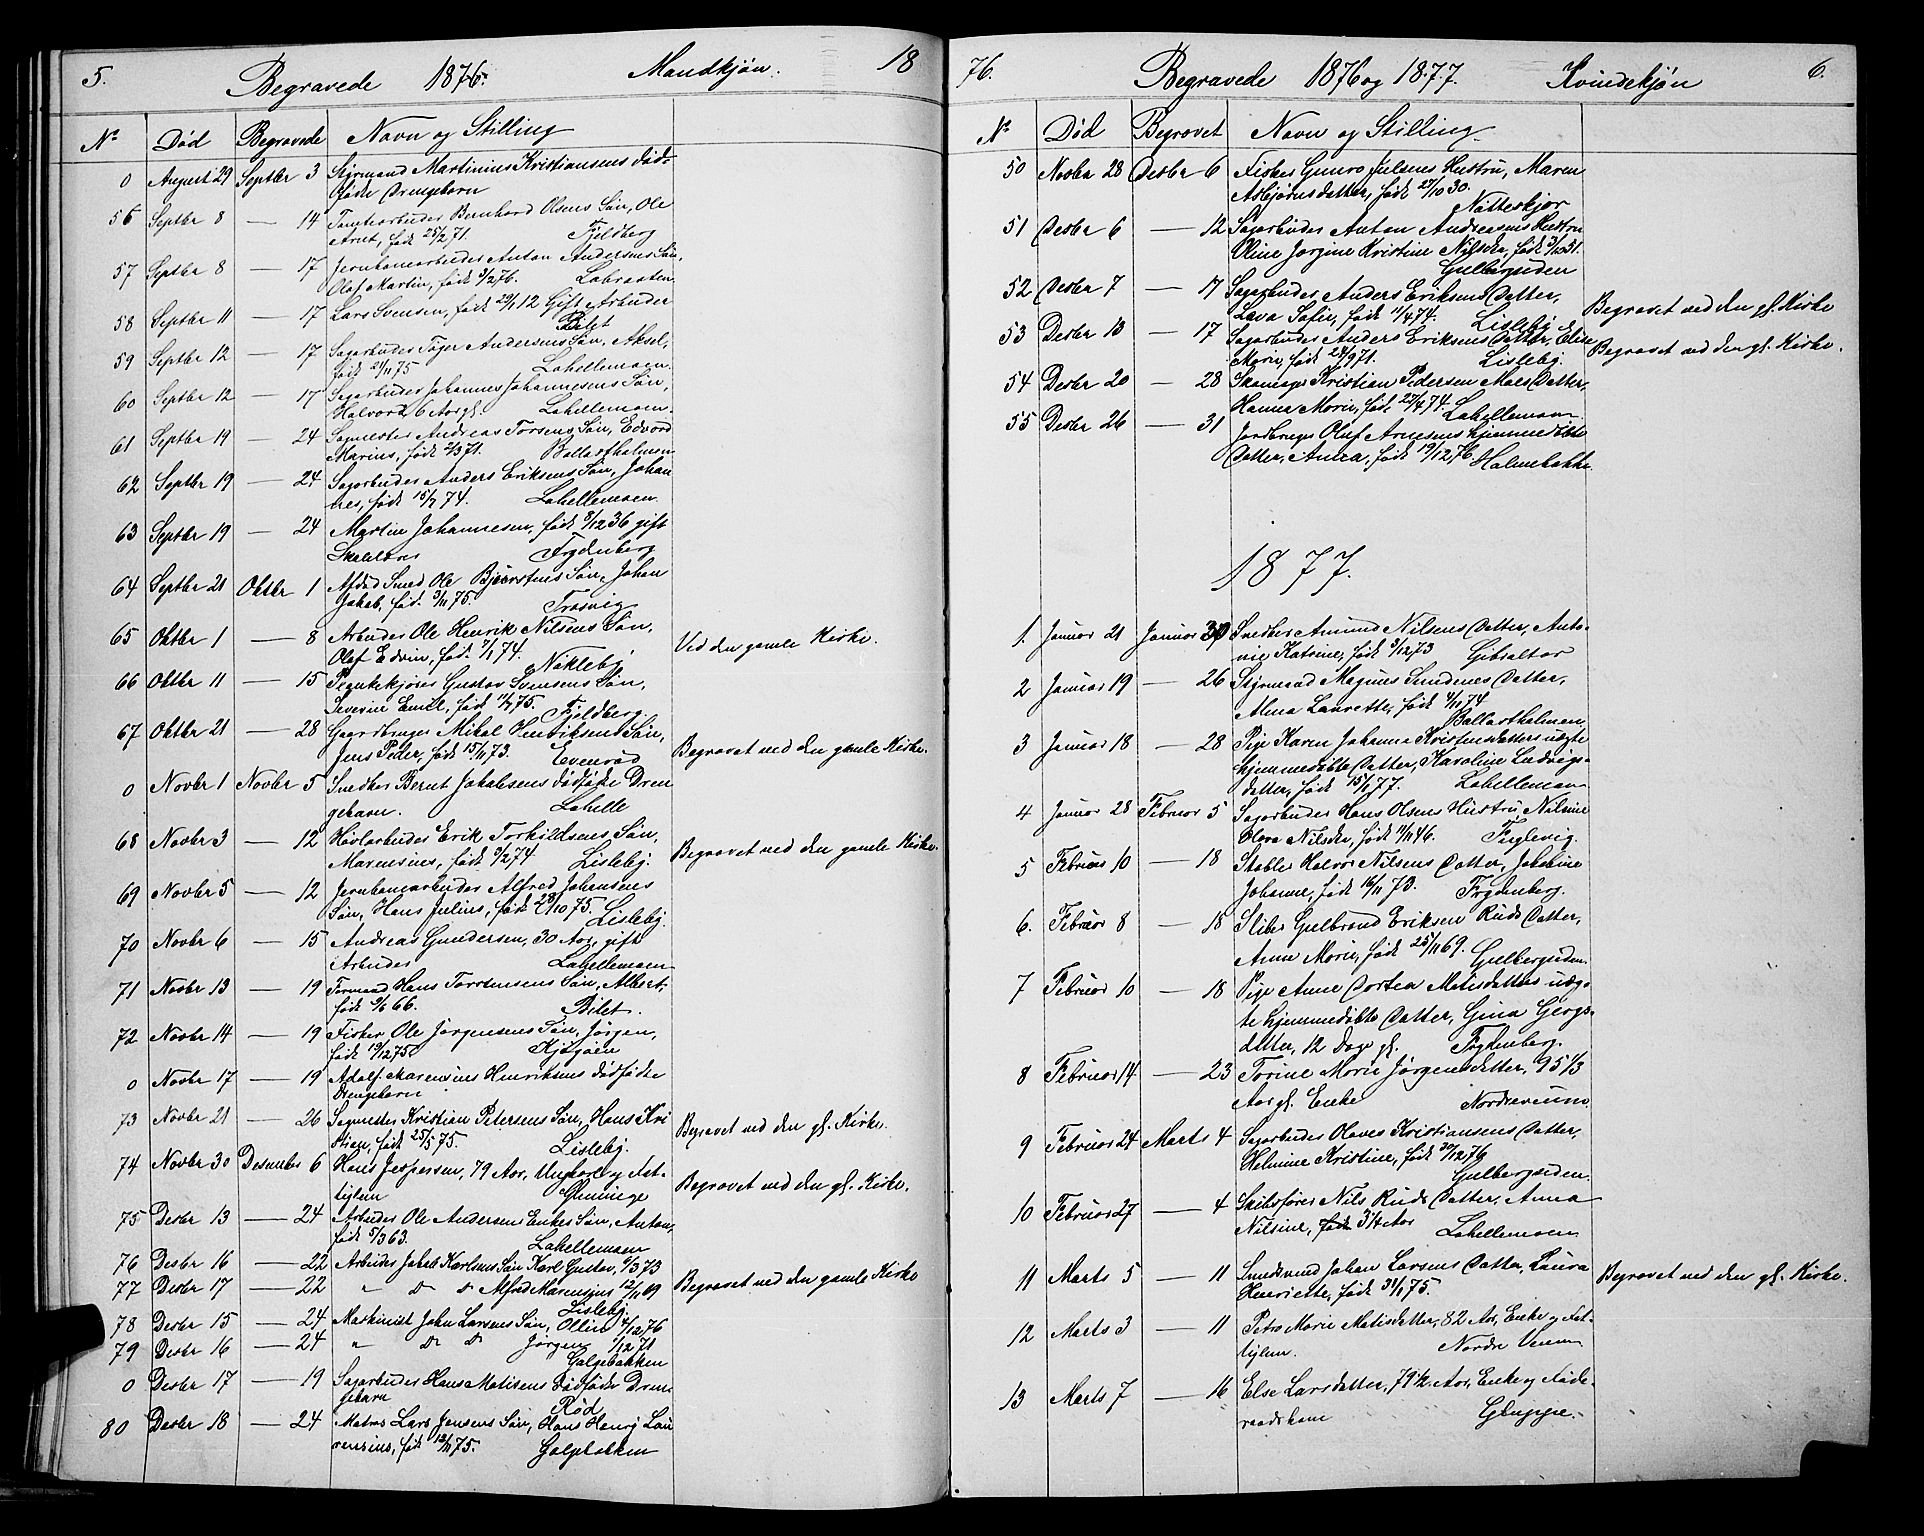 5. Begravede 1876. Mandkjøn. 18
No Død Begravede Navn og Stilling
0 August 29 Septbr 3 Styrmand Martinius Kristiansens død-
fødte Drengebarn
56 Septbr 8 — 14 Tomtearbeider Bernhard Olsens Søn, Ole
Arnt, født 25/2 71. Fjeldberg
57 Septbr 8 — 17 Jernbanearbeider Anton Andersens Søn,
Olaf Martin, født 3/2 76. Labraaten
58 Septbr 11 — 17 Lars Svensen, født 29/1 12 Gift Arbeider
Bilet
59 Septbr 12 — 17 Sagarbeider Tøger Andersens Søn, Aksel,
født 21/11 75 Lahellemoen.
60 Septbr 12 — 17 Sagarbeider Johannes Johannesens Søn,
Halvard 6 Aar gl. Lahellemoen.
61 Septbr 19 — 24 Sagmester Andreas Torsens Søn, Edvard
Marius, født 2/3 71. Ballastholmen
62 Septbr 19 — 24 Sagarbeider Anders Eriksens Søn, Johan
nes, født 15/7 74. Lahellemoen.
63 Septbr 19 — 24 Martin Johannesen, født 8/12 36 gift
Frydenberg
64 Septbr 21 Oktbr 1 Afdød Smed Ole Bjørnstens Søn, Johan
Jakob, født 3/11 75. Trosvig
65 Oktbr 1 — 8 Arbeider Ole Henrik Nilsens Søn,
Olaf Edvin, født 7/1 74. Nøkleby Ved den gamle Kirke.
66 Oktbr 11 — 15 Plankekjører Gustav Svensens Søn,
Severin Emil, født 11/7 75. Fjeldberg.
67 Oktbr 21 — 28 Gaardbruger Mikal Henriksens Søn,
Jens Peder, født 15/11 73. Evenrød Begravet ved den gamle Kirke.
0 Novbr 1 Novbr 5 Snedker Bernt Jakobsens dødfødte Dren
gebarn. Lahelle
68 Novbr 3 — 12 Høvlarbeider Erik Torkildsens Søn,
Marensius, født 5/2 74 Lisleby. Begravet ved den gamle Kirke.
69 Novbr 5 — 12 Jernbanearbeider Alfred Johansens
Søn, Hans Julius, født 28/10 75. Lisleby.
70 Novbr 6 — 15 Andreas Gundersen, 30 Aar, gift
Arbeider Lahellemoen
71 Novbr 13 — 19 Formand Hans Torstensens Søn, Albert,
født 9/6 66. Bilet.
72 Novbr 14 — 19 Fisker Ole Jørgensens Søn, Jørgen,
født 19/12 75 Kjøkøen
0 Novbr 17 — 19 Adolf Marensius Henriksens dødfødte
Drengebarn
73 Novbr 21 — 26 Sagmester Kristian Petersens Søn, Hans Kri
stian, født 25/5 75. Lisleby. Begravet ved den gl. Kirke.
74 Novbr 30 Desember 6 Hans Jespersen, 79 Aar, Ungkarl og Fat-
tiglem Glemmige Begravet ved den gl. Kirke.
75 Desbr 13 — 24 Arbeider Ole Andersens Enkes Søn, Anton,
født 5/3 63. Lahellemoen
76 Desbr 16 — 22 Arbeider Jakob Karlsens Søn Karl Gustav, 6/3 73
77 Desbr 17 — 22 " do do Alfred Marensius 12/11 69 Begravet ved den gamle Kirke
Lisleby.
78 Desbr 15 — 24 Maskinist John Larsens Søn, Ollin 4/12 76
79 Desbr 16 — 24 " do do Jørgen 1/12 71
Galgebakken
0 Desbr 17 — 19 Sagarbeider Hans Matisens dødfødte Dren
gebarn Rød
80 Desbr 18 — 24 Matros Lars Jensens Søn, Hans Henry Lau
rensius, født 13/11 75. Galgebakken
76. Begravede 1876 og 1877. Kvindekjøn 6.
No Død Begravet Navn og Stilling.
50 Novbr 28 Desbr 6 Fisker Gunro Juliens Hustru, Maren
Asbjørnsdatter, født 27/10 30.
Nøtteskjær
51 Desbr 6 — 12 Sagarbeider Anton Andreasens Hustru
Oline Jørgine Kristine Nilsdtr, født 3/12 31.
Gulbergsiden
52 Desbr 7 — 17 Sagarbeider Anders Eriksens Datter,
Lava Sofie, født 11/4 74. Lisleby Begravet ved den gl. Kirke
53 Desbr 13 — 17 Sagarbeider Anders Eriksens Datter, Elise
Marie, født 28/9 71. Lisleby. Begravet ved den gl. Kirke.
54 Desbr 20 — 28 Kristian Pedersen Moes Datter,
Hanna Marie, født 27/4 74 Lahellemoen
55 Desbr 26 — 31 Jordbruger Oluf Arnesens hjemmedøbte
Datter, Anna, født 19/12 76. Holmebakke.
1877.
1. Januar 21 Januar 30 Snedker Amund Nilsens Datter, Anto-
nie Katrine, født 3/12 73 Gibraltar
2 Januar 19 — 26 Styrmand Magnus Smidenes Datter,
Alma Laurette, født 4/11 74
Ballastholmen
3 Januar 18 — 28 Pige Karen Johanna Kristensdatters uægte
hjemmedøbte Datter, Karoline Ludvigs-
datter, født 15/1 77. Lahellemoen
4 Januar 28 Februar 5 Sagarbeider Hans Olsens Hustru Nilmine
Olava Nilsdtr, født 11/11 46. Fuglevig.
5 Februar 10 — 18 Stabler Halvor Nilsens Datter, Jakobine
Johanne, født 16/11 73. Frydenberg.
6. Februar 8 — 18 Sliber Gulbrand Eriksen Ruds Datter,
Anne Marie, født 25/11 69. Gulbergsiden.
7 Februar 10 — 18 Pige Anne Dortea Matisdatters uæg-
te hjemmedøbte Datter, Gina Georgs-
datter, 12 Dage gl. Frydenberg.
8 Februar 14 — 23 Torine Marie Jørgensdatter, 95 1/3
Aar gl. Enke Nordreveum
9 Februar 24 Marts 4 Sagarbeider Olaves Kristiansens Datter,
Helmine Kristine, født 30/12 76
Gulbergsiden
10 Februar 27 — 4 Skibsfører Nils Ruds Datter, Anna
Nilsine, født 3 1/4 Aar Lahellemoen
11 Marts 5 — 11 Johan Larsens Datter, Laura
Henriette, født 31/1 75. Begravet ved den gl. Kirke.
12 Marts 3 — 11 Petra Marie Matisdatter, 82 Aar, Enke og Fat-
tiglem. Nordre Veum
13 Marts 7 — 16 Else Larsdatter, 79 1/2 Aar, Enke og Føde-
raadskone Gluppe.